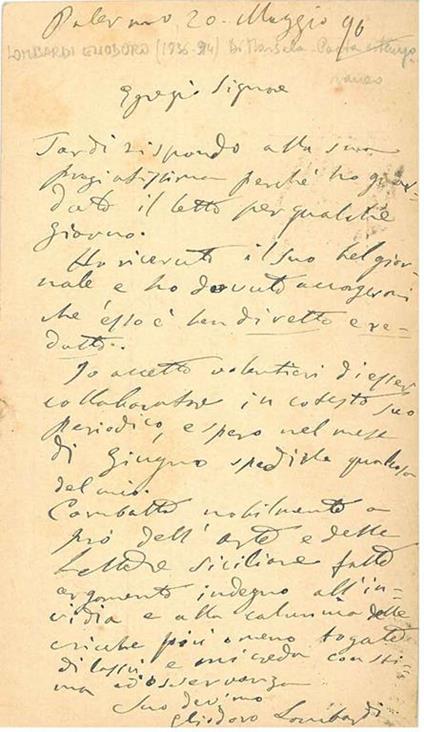 Palermo, 20. Maggio 96
LOMBARDI ELIODORO (1836-94) Di Marsala - Poeta estempo-
raneo
Egregio Signore
Tardi rispondo alla sua
pregiatissima perché ho guar-
dato il letto per qualche
giorno.
Ho ricevuto il suo bel gior-
nale e ho dovuto accorgermi
che esso è ben diretto e re-
datto.
Io accetto volentieri di esser
collaboratore in cotesto suo
periodico, e spero nel mese
di Giugno spedirle qualcosa
del mio.
Combatta nobilmente a
pro dell'arte e delle
lettere siciliane fatte
argomento indegno all'in-
vidia e alla calunnia delle
cricche più o meno togate
di lassù e mi creda con sti-
ma ed osservanza
Suo dev.mo
Eliodoro Lombardi